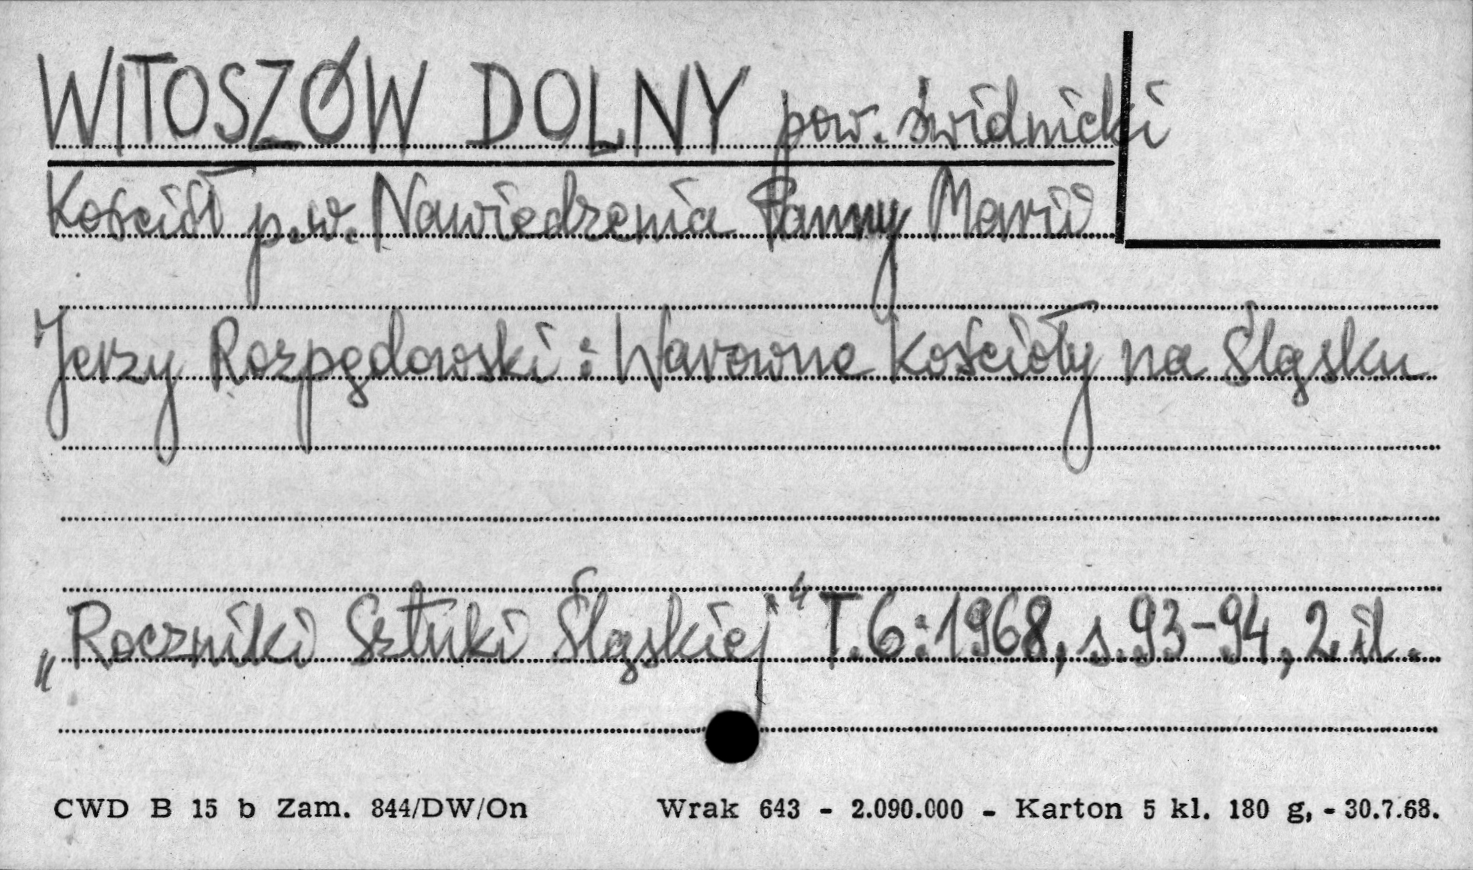 WITOSZÓW DOLNY pow. świdnicki
Kościół p.w. Nawiedzenia Panny Marii
Jerzy Rozpędowski: Warowne kościoły na Śląsku
„Roczniki Sztuki Śląskiej" T.6:1968, s.93-94, 2 il.
CWD B 15 b Zam. 844/DW/On Wrak 643 - 2.090.000 - Karton 5 kl. 180 g, - 30.7.68.